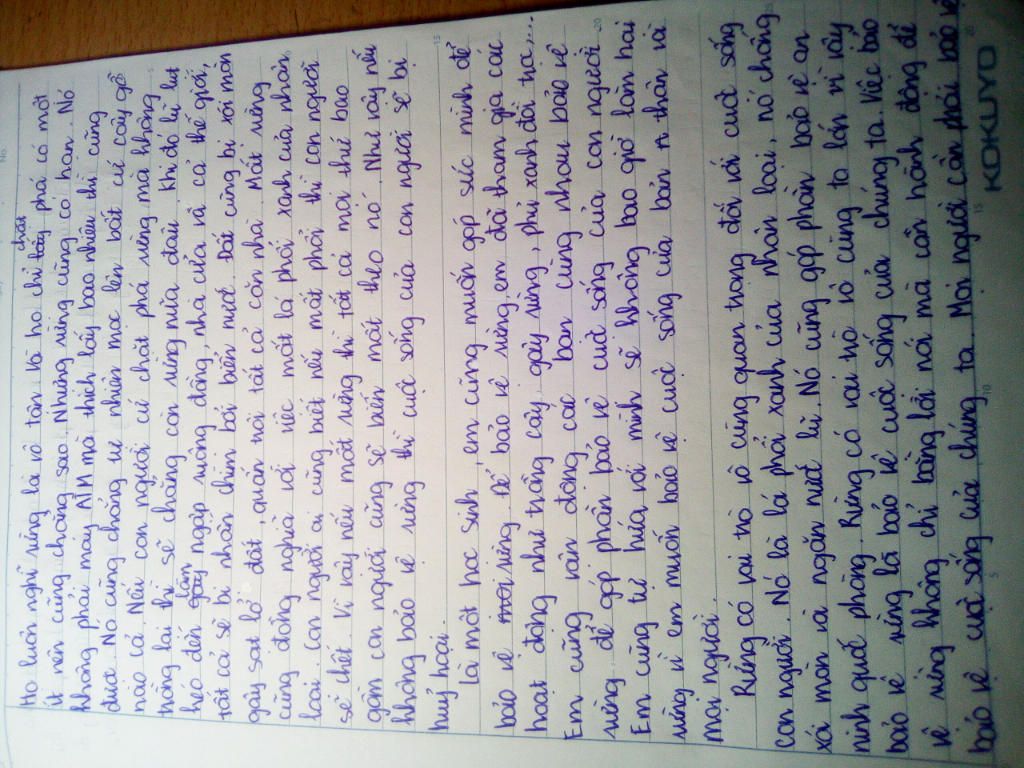 Họ luôn nghĩ rừng là vô tận và họ chỉ chặt phá có một
ít nên cũng chẳng sao. Nhưng rừng cũng có hạn. Nó
không phải máy ATM mà thích lấy bao nhiêu thì cũng
được. Nó cũng chẳng tự nhiên mọc lên bất cứ cây gỗ
nào cả. Nếu con người cứ chặt phá rừng mà không
trồng lại thì sẽ chẳng còn rừng nữa đâu. Khi đó lũ lụt
kéo đến gây ngập ruộng đồng, nhà cửa và cả thế giới,
tất cả sẽ bị nhấn chìm bởi biển nước. Đất cũng bị xói mòn
gây sạt lở đất, quấn trôi tất cả căn nhà. Mất rừng
cũng đồng nghĩa với việc mất lá phổi xanh của nhân
loại. Con người ai cũng biết nếu mất phổi thì con người
sẽ chết. Vì vậy nếu mất rừng thì tất cả mọi thứ bao
gồm con người cũng sẽ biến mất theo nó. Như vậy nếu
không bảo vệ rừng thì cuộc sống của con người sẽ bị
huỷ hoại.
Là một học sinh, em cũng muốn góp sức mình để
bảo vệ rừng. Để bảo vệ rừng, em đã tham gia các
hoạt động như trồng cây gây rừng, phủ xanh đồi trọc,...
Em cũng vận động các bạn cùng nhau bảo vệ
rừng để góp phần bảo vệ cuộc sống của con người.
Em cũng tự hứa với mình sẽ không bao giờ làm hại
rừng vì em muốn bảo vệ cuộc sống của bản thân và
mọi người.
Rừng có vai trò vô cùng quan trọng đối với cuộc sống
con người. Nó là lá phổi xanh của nhân loại, nó chống
xói mòn và ngăn nước lũ. Nó cũng góp phần bảo vệ an
ninh quốc phòng. Rừng có vai trò vô cùng to lớn vì vậy
bảo vệ rừng là bảo vệ cuộc sống của chúng ta. Việc bảo
vệ rừng không chỉ bằng lời nói mà cần hành động để
bảo vệ cuộc sống của chúng ta. Mọi người cần phải bảo vệ
KOKUYO